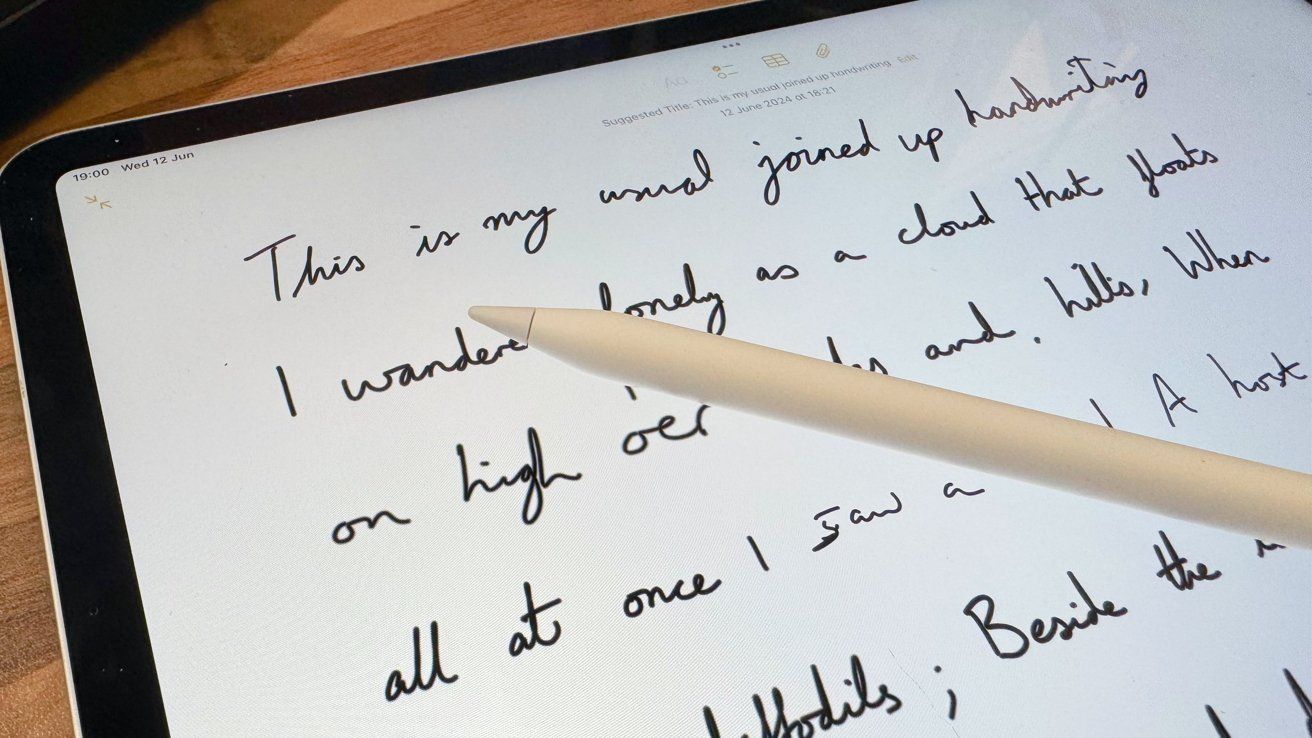 19:00 Wed 12 Jun
Aa
Suggested Title: This is my usual joined up handwriting Edit
12 June 2024 at 18:21
This is my usual joined up handwriting
I wandere lonely as a cloud that floats
on high o'er and hills, When
all at once I saw a A host
daffodils; Beside the